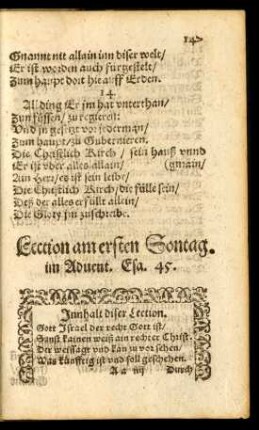 Gnannt nit allain inn diser welt/
Er ist worden auch fürgestelt/
Zum haupt dort hie auff Erden.
14.
All ding Er jm hat vnterthan/
Zun füssen/ zu regiern:
Vnd jn gesetzt vor jederman/
Zum haupt/ zu Gubernieren.
Die Christlich Kirch/ sein hauß vnnd
Er ist vber alles allain/ (gmain/
Ain Herr/ es ist sein leibe/
Die Christlich Kirch/ die fülle sein/
Deß der alles erfüllt allein/
Die Glory jm zuschreibe.
Lection am ersten Sontag.
im Aduent. Esa. 45.
Innhalt diser Lection.
Gott Israel der recht Gott ist/
Sunst kainen waiß ain rechter Christ.
Der weissagt vnd kan zu vor sehen/
Was künfftig ist vnd soll geschehen.
A a iiij Durch